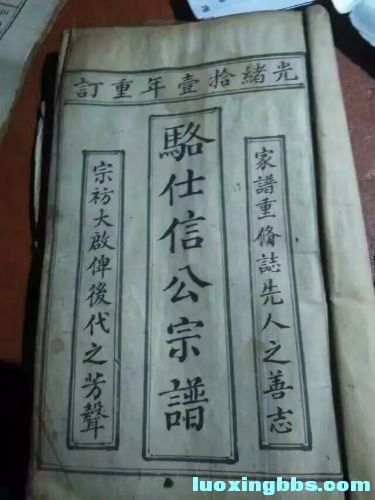 光緒拾壹年重訂
家譜重脩誌先人之善志
駱仕信公宗譜
宗祊大啟俾後代之芳聲
luoxingbbs.com